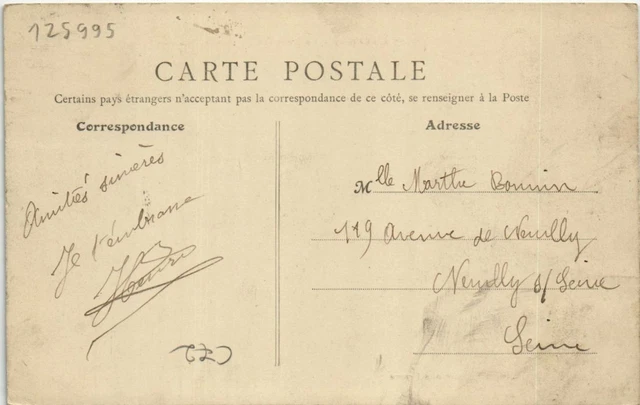 125995
CARTE POSTALE
Certains pays étrangers n'acceptant pas la correspondance de ce côté, se renseigner à la Poste
Correspondance
Adresse
Amitiés sincères
Je t'embrasse
Mlle Marthe
119 Avenue de Neuilly
Neuilly s/ Seine
Seine